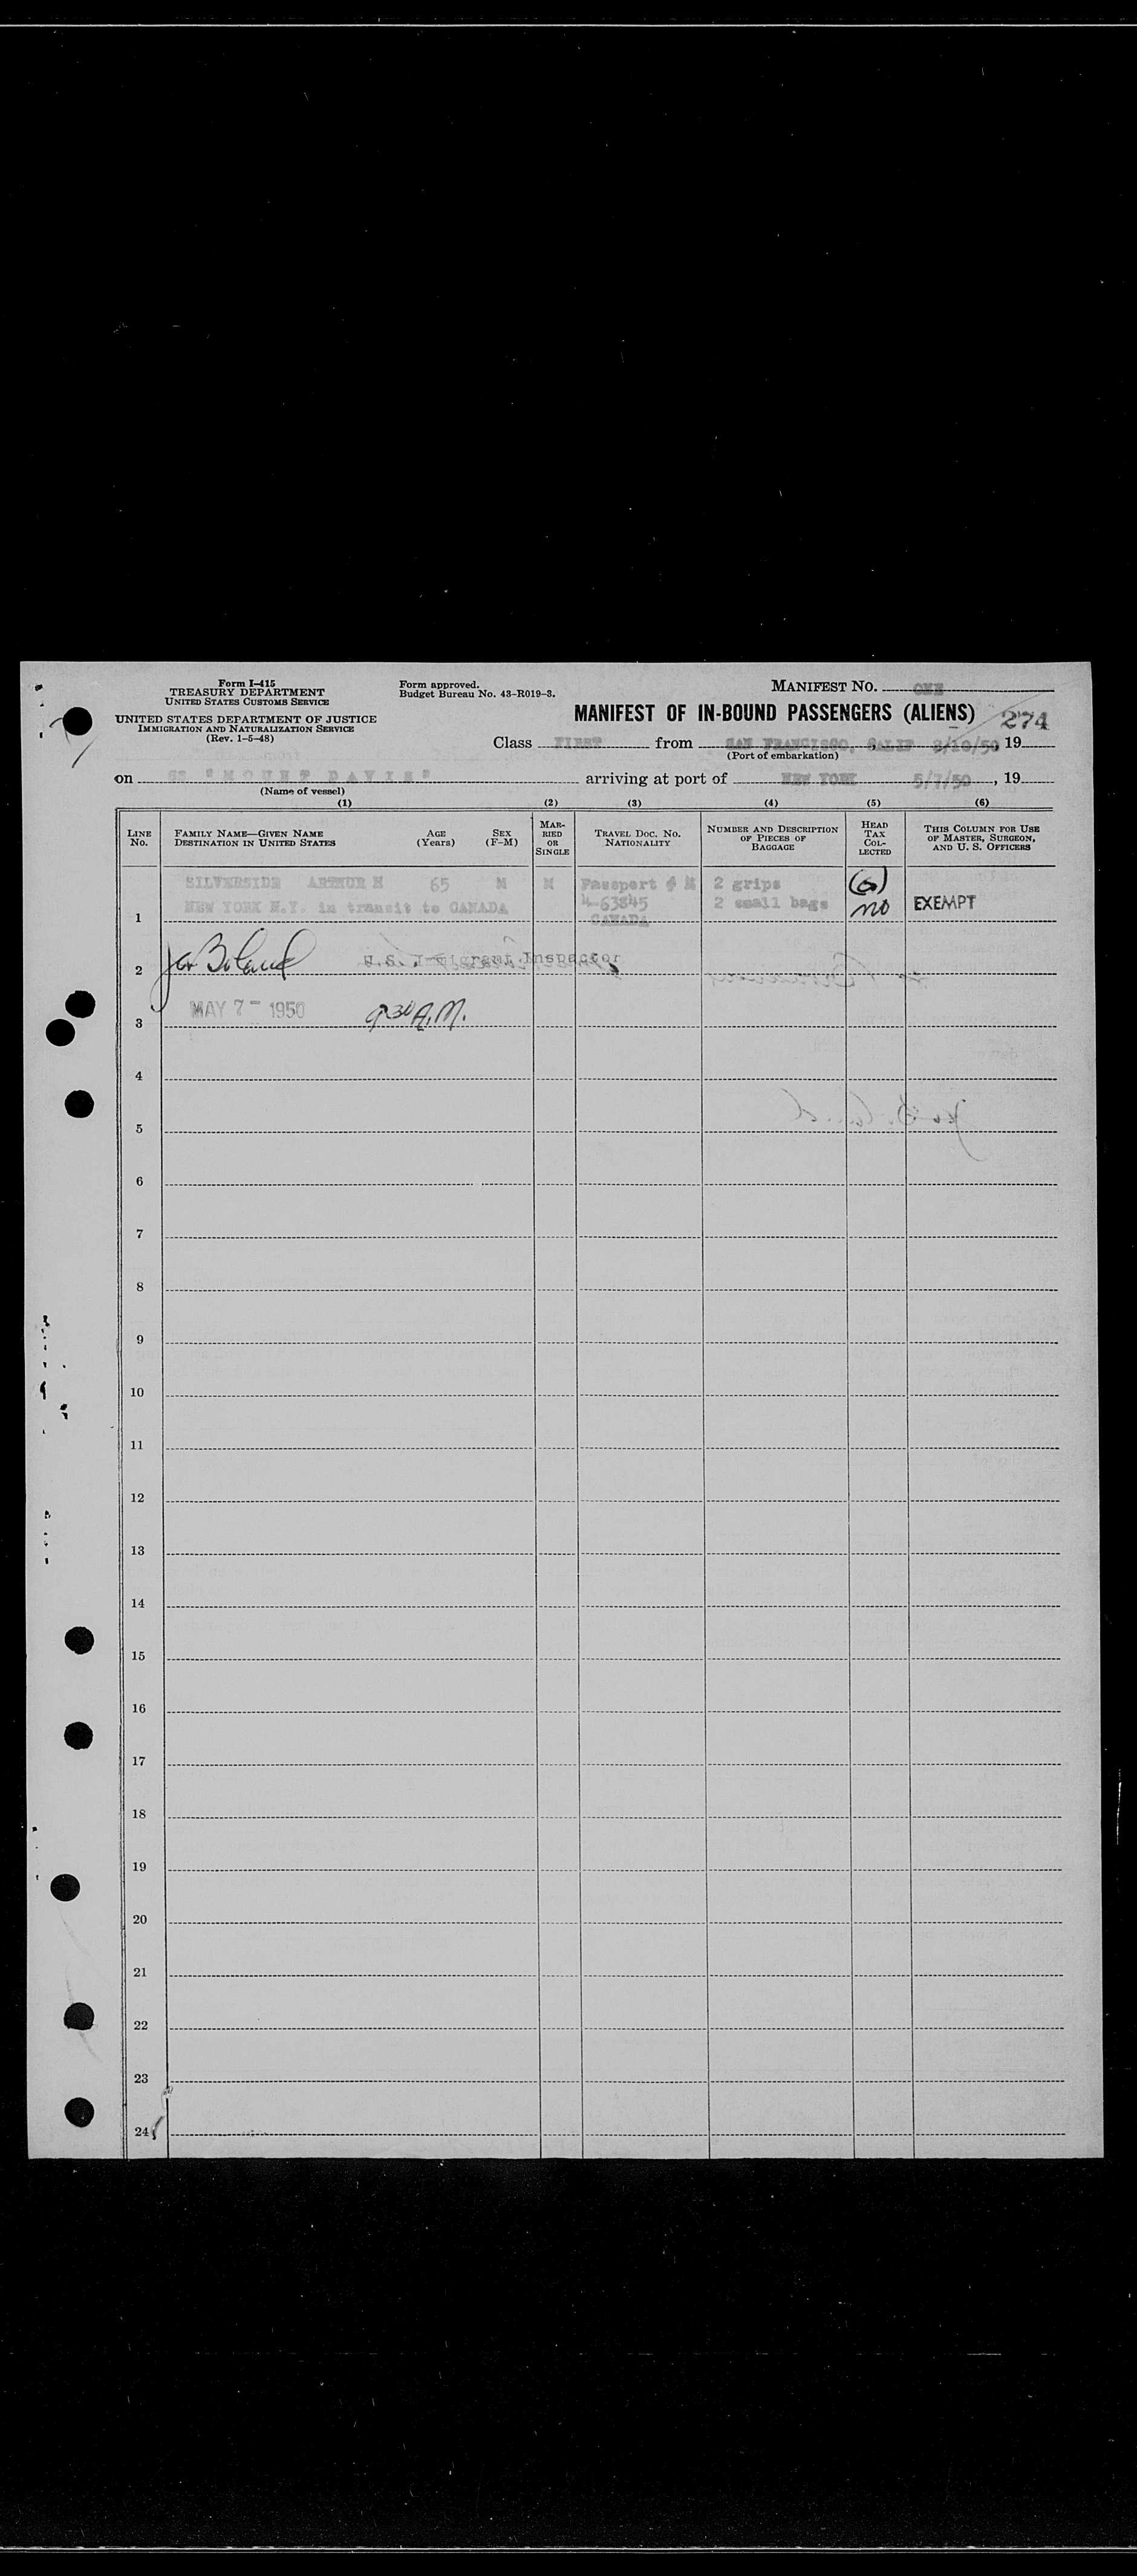 Form I-415
TREASURY DEPARTMENT
UNITED STATES CUSTOMS SERVICE
UNITED STATES DEPARTMENT OF JUSTICE
IMMIGRATION AND NATURALIZATION SERVICE
(Rev. 1-5-48)
Form approved.
Budget Bureau No. 43-R019-3.
MANIFEST NO. ONE
MANIFEST OF IN-BOUND PASSENGERS (ALIENS) 274
Class FIRST from SAN FRANCISCO, CALIF 19
(Port of embarkation)
on SS "MOUNT DAVIS" arriving at port of NEW YORK 5/7/50, 19
(Name of vessel)
(1) (2) (3) (4) (5) (6)
LINE NO. FAMILY NAME—GIVEN NAME DESTINATION IN UNITED STATES AGE (Years) SEX (F-M) MARRIED OR SINGLE TRAVEL DOC. NO. NATIONALITY NUMBER AND DESCRIPTION OF PIECES OF BAGGAGE HEAD TAX COLLECTED THIS COLUMN FOR USE OF MASTER, SURGEON, AND U. S. OFFICERS
SILVERSIDE ARTHUR H 65 M M Passport # 2 grips
NEW YORK N.Y. in transit to CANADA 4-63845 2 small bags no EXEMPT
1 CANADA
2 Jas Boland U.S. Immigrant Inspector
3 MAY 7 - 1950 9 30 A.M.
4
5
6
7
8
9
10
11
12
13
14
15
16
17
18
19
20
21
22
23
24